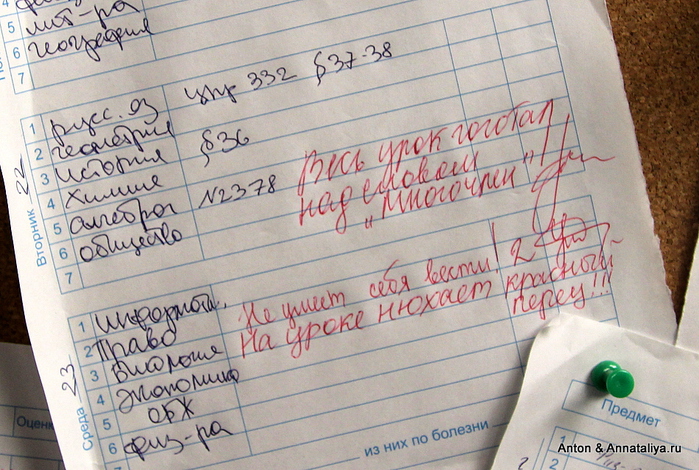 5 лит-ра
6 география
7
Вторник 22
1 русс. яз упр 332 §37-38
2 геометрия
3 история §36
4 химия
5 алгебра №2378
6 общество
7
Весь урок гоготал
над словом
„Многочлен"!!
Среда 23
1 Информат.
2 Право
3 Биология
4 экономика
5 ОБЖ
6 физ-ра
Не умеет себя вести! 2
На уроке нюхает красный
перец!!!
из них по болезни
Оценк
Предмет
1
2
Anton & Annataliya.ru